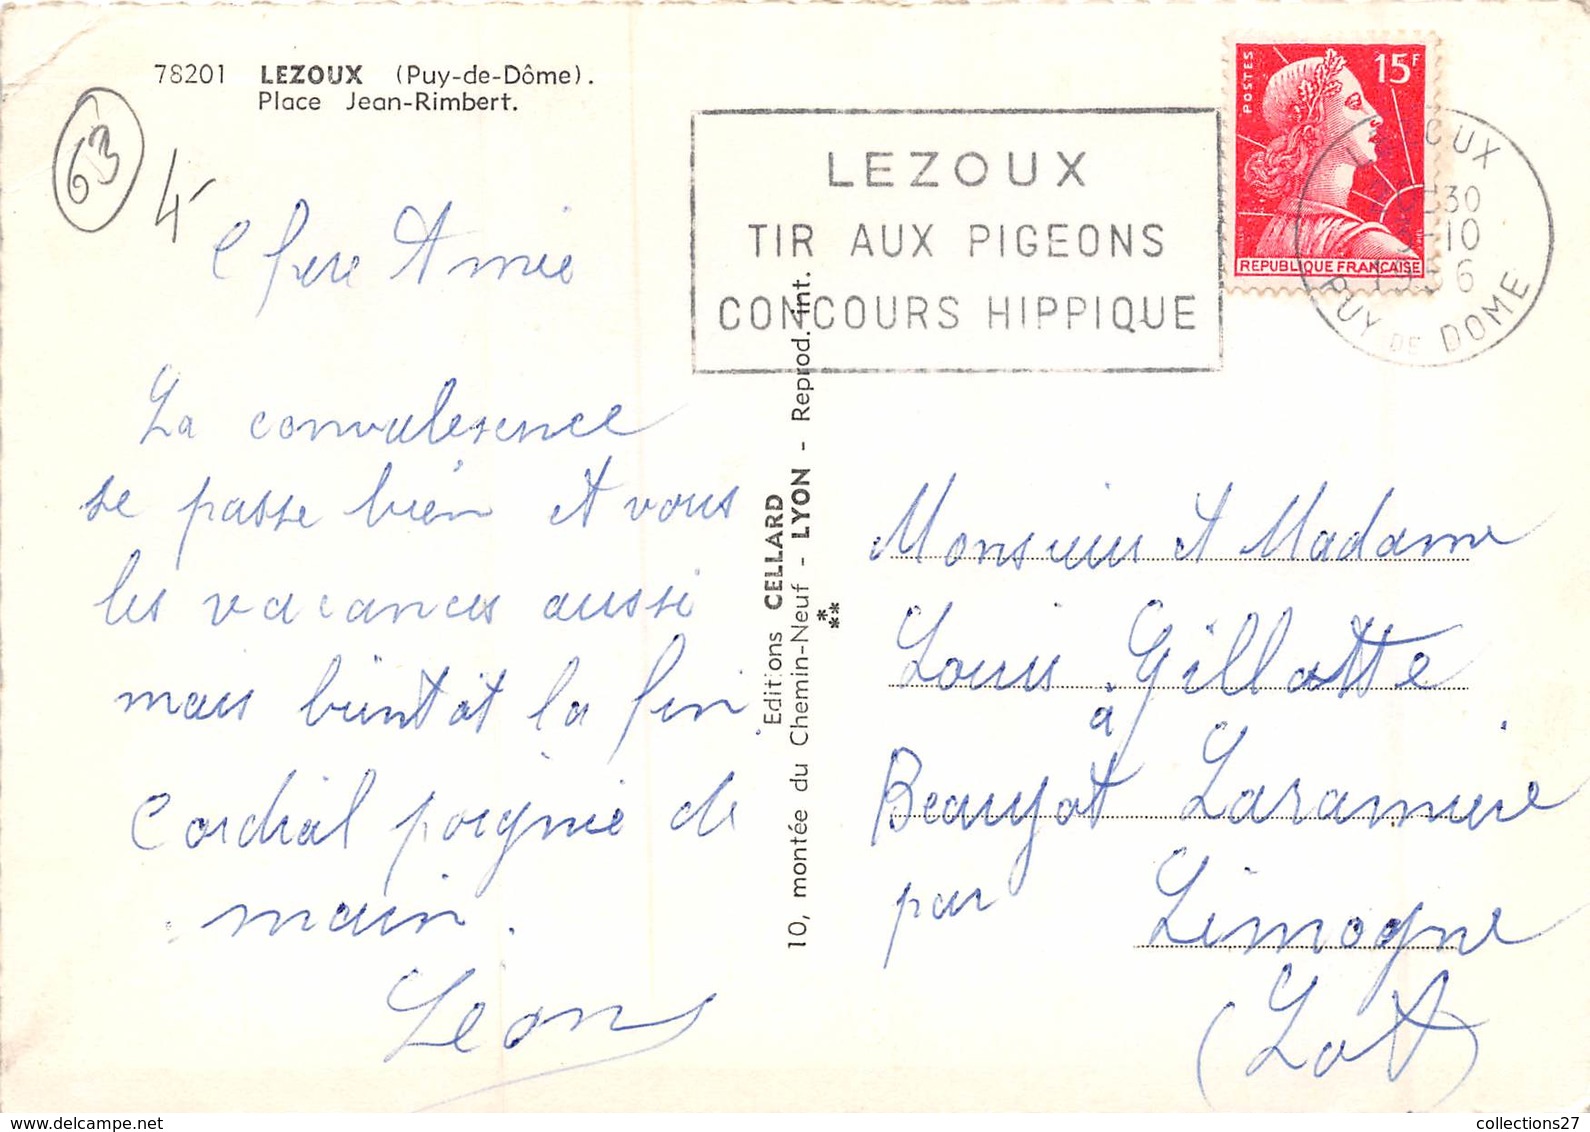 78201 LEZOUX (Puy-de-Dôme).
Place Jean-Rimbert.
63
4
Chere Amie
La convalesence
se passe bien et vous
les vacances aussi
mais bientot la fin.
Cordial poignie de
main.
Léon
Editions CELLARD
10, montée du Chemin-Neuf - LYON - Reprod. int.
LEZOUX
TIR AUX PIGEONS
CONCOURS HIPPIQUE
POSTES
15F
REPUBLIQUE FRANÇAISE
LEZOUX
30
-10
1956
PUY DE DOME
Monsieur et Madame
Louis Gillotte
à
Beaujot Laramiere
par Limogne
(Lot)
www.delcampe.net
collections27